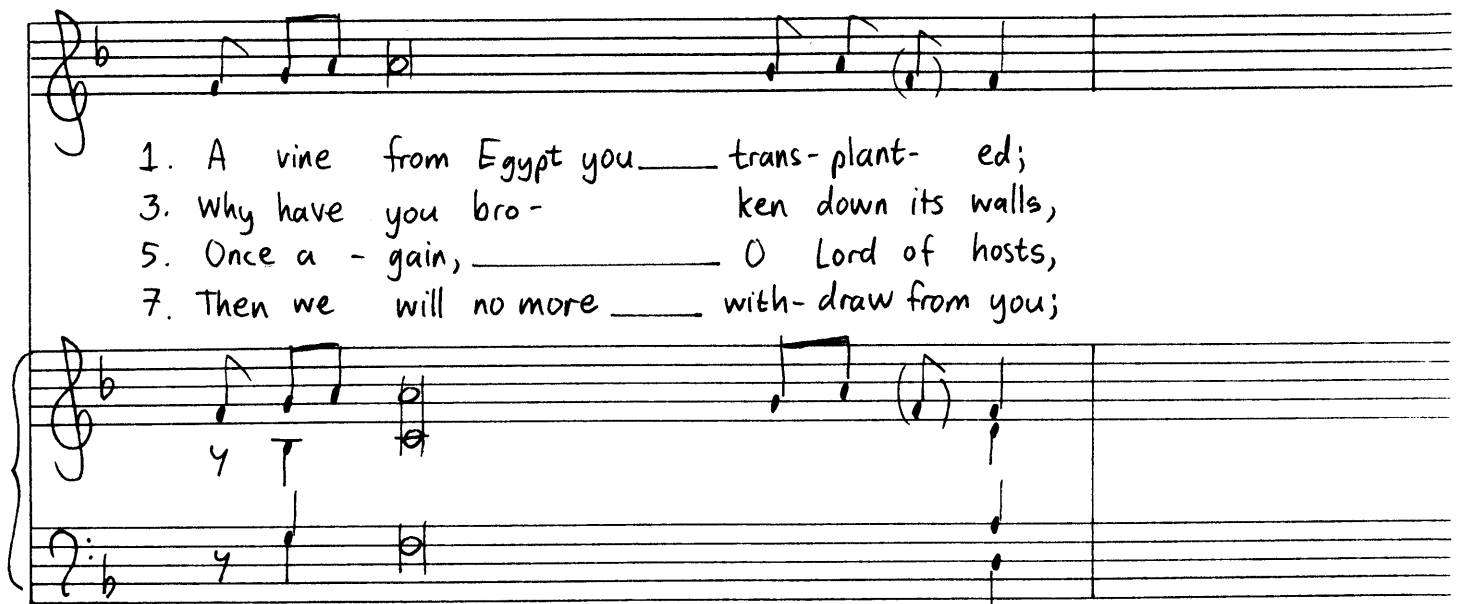 1. A vine from Egypt you____ trans- plant- ed;
3. Why have you bro- ken down its walls,
5. Once a - gain, ____________ O Lord of hosts,
7. Then we will no more ____ with- draw from you;